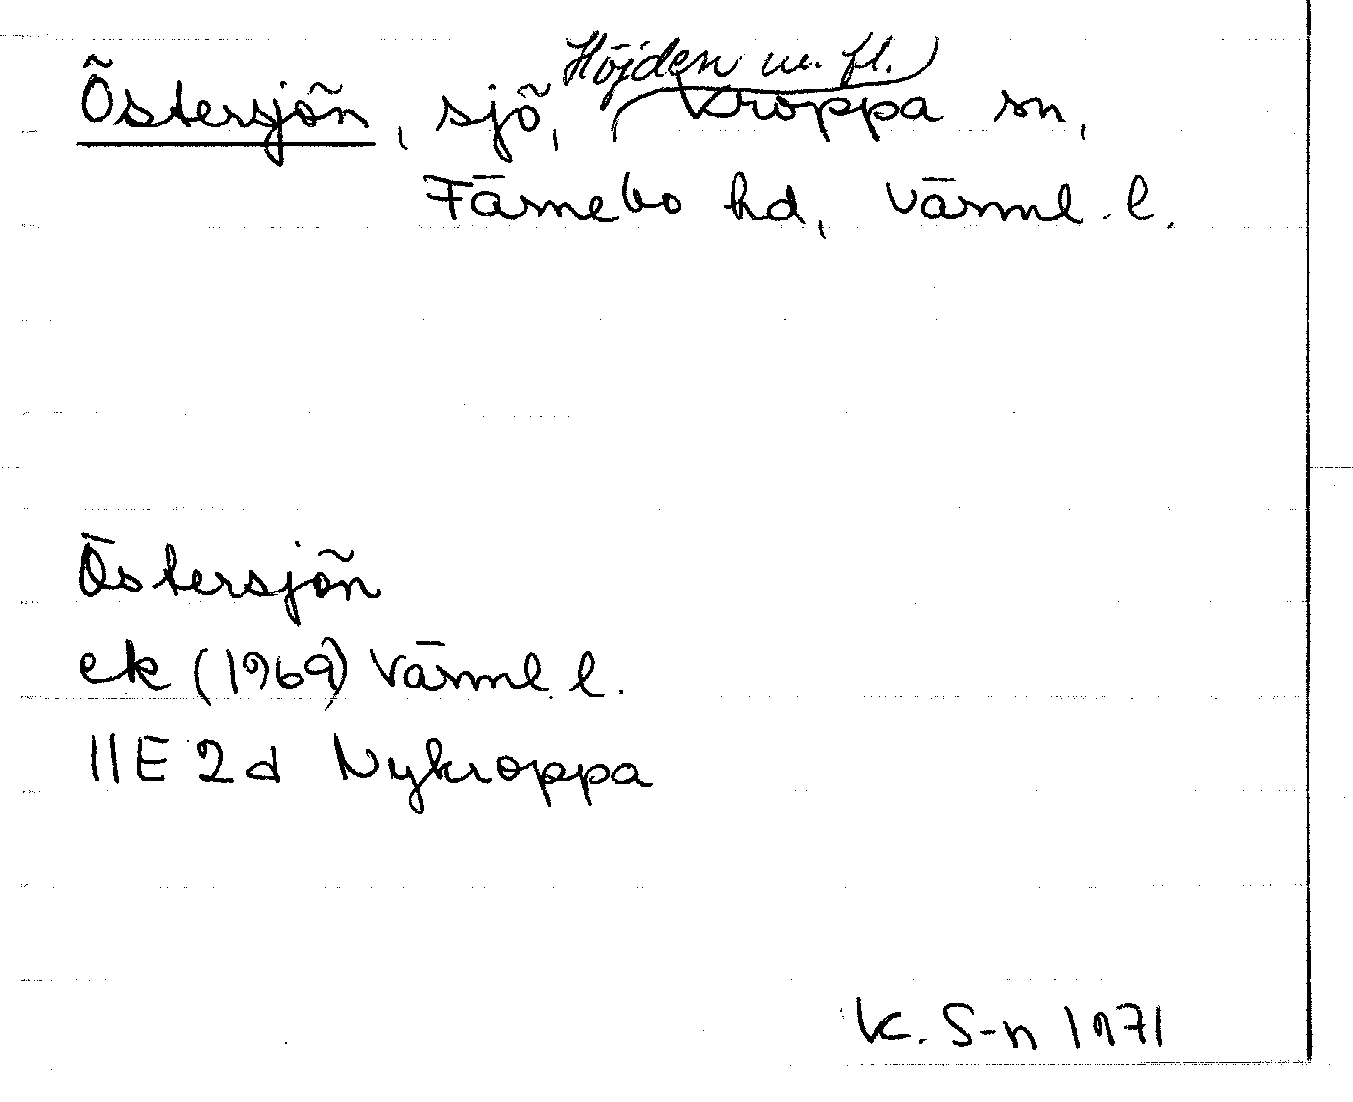 Östersjön, sjö, Höjden m. fl. Kroppa sn,
Färnebo hd, Värml. l.
Östersjön
ek (1969) Värml. l.
11E 2d Nykroppa
K. S-n 1971